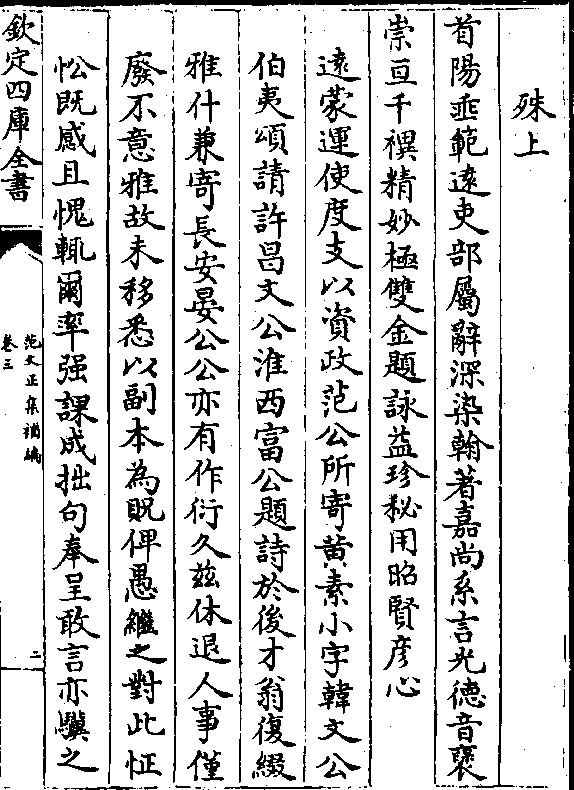 殊上
首陽垂範遠吏部屬辭深染翰著嘉尚系言光德音褒
崇亘千禩精妙極雙金題詠益珍秘用昭賢彦心
遠蒙運使度支以資政范公所寄黄素小字韓文公
伯夷頌請許昌文公淮西富公題詩於後才翁復綴
雅什兼寄長安晏公公亦有作衍久兹休退人事僅
廢不意雅故未移悉以副本為貺俾愚繼之對此怔
忪既感且愧輒爾率强課成拙句奉呈敢言亦驥之
欽定四庫全書
范文正集補編
卷三
二